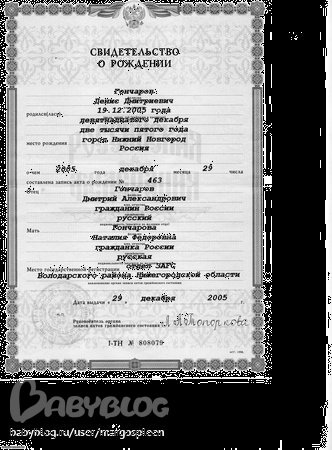 СВИДЕТЕЛЬСТВО
О РОЖДЕНИИ
Гончаров
Денис Дмитриевич
родился(лась) 19.12.2005 года
девятнадцатого декабря
две тысячи пятого года
место рождения город Нижний Новгород
Россия
о чем 2005. года декабря месяца 29 числа
составлена запись акта о рождении № 463
Отец Гончаров
Дмитрий Александрович
гражданин России
русский
Мать Гончарова
Наталия Федоровна
гражданка России
русская
Место государственной регистрации отдел ЗАГС
Володарского района Нижегородской области
Дата выдачи « 29 » декабря 2005 г.
Руководитель органа
записи актов гражданского состояния
I-ТН № 808079
BABYBLOG
babyblog.ru/user/margospleen